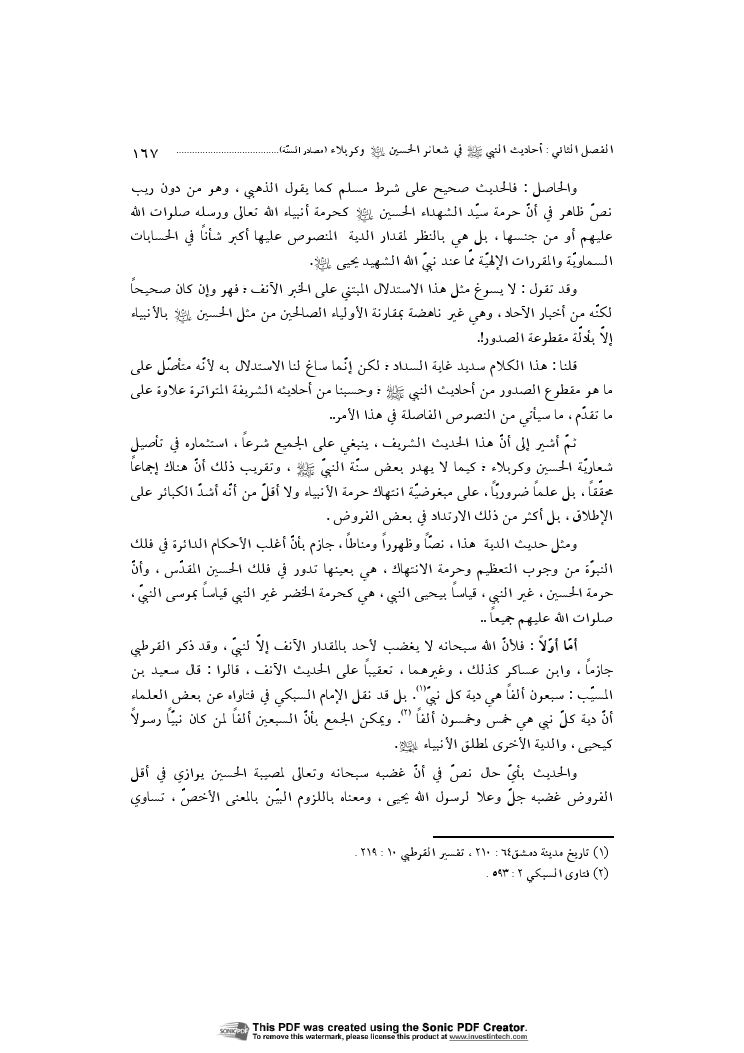 الفصل الثاني : أحاديث النبي ﷺ في شعائر الحسين ﷺ وكربلاء (مصادر السنّة)....................................... ١٦٧
والحاصل : فالحديث صحيح على شرط مسلم كما يقول الذهبي ، وهو من دون ريب
نصّ ظاهر في أنّ حرمة سيّد الشهداء الحسين كحرمة أنبياء الله تعالى ورسله صلوات الله
عليهم أو من جنسها ، بل هي بالنظر لمقدار الدية المنصوص عليها أكبر شأناً في الحسابات
السماويّة والمقررات الإلهيّة ممّا عند نبيّ الله الشهيد يحيى .
وقد تقول : لا يسوغ مثل هذا الاستدلال المبتني على الخبر الآنف ؛ فهو وإن كان صحيحاً
لكنّه من أخبار الآحاد ، وهي غير ناهضة بمقارنة الأولياء الصالحين من مثل الحسين بالأنبياء
إلاّ بأدلّة مقطوعة الصدور!.
قلنا : هذا الكلام سديد غاية السداد ؛ لكن إنّما ساغ لنا الاستدلال به لأنّه متأصّل على
ما هو مقطوع الصدور من أحاديث النبي ﷺ ؛ وحسبنا من أحاديثه الشريفة المتواترة علاوة على
ما تقدّم ، ما سيأتي من النصوص الفاصلة في هذا الأمر..
ثمّ أشير إلى أنّ هذا الحديث الشريف ، ينبغي على الجميع شرعاً ، استثماره في تأصيل
شعاريّة الحسين وكربلاء ؛ كيما لا يهدر بعض سنّة النبيّ ﷺ ، وتقريب ذلك أنّ هناك إجماعاً
محقّقاً ، بل علماً ضروريّاً ، على مبغوضيّة انتهاك حرمة الأنبياء ولا أقلّ من أنّه أشدّ الكبائر على
الإطلاق ، بل أكثر من ذلك الارتداد في بعض الفروض .
ومثل حديث الدية هذا ، نصّاً وظهوراً ومناطاً ، جازم بأنّ أغلب الأحكام الدائرة في فلك
النبوّة من وجوب التعظيم وحرمة الانتهاك ، هي بعينها تدور في فلك الحسين المقدّس ، وأنّ
حرمة الحسين ، غير النبي ، قياساً بيحيى النبي ، هي كحرمة الخضر غير النبي قياساً بموسى النبيّ ،
صلوات الله عليهم جميعاً ..
أمّا أوّلاً : فلأنّ الله سبحانه لا يغضب لأحد بالمقدار الآنف إلاّ لنبيّ ، وقد ذكر القرطبي
جازماً ، وابن عساكر كذلك ، وغيرهما ، تعقيباً على الحديث الآنف ، قالوا : قال سعيد بن
المسيّب : سبعون ألفاً هي دية كل نبيّ(١). بل قد نقل الإمام السبكي في فتاواه عن بعض العلماء
أنّ دية كلّ نبي هي خمس وخمسون ألفاً (٢). ويمكن الجمع بأنّ السبعين ألفاً لمن كان نبيّاً رسولاً
كيحيى ، والدية الأخرى لمطلق الأنبياء .
والحديث بأيّ حال نصّ في أنّ غضبه سبحانه وتعالى لمصيبة الحسين يوازي في أقل
الفروض غضبه جلّ وعلا لرسول الله يحيى ، ومعناه باللزوم البيّن بالمعنى الأخصّ ، تساوي
(١) تاريخ مدينة دمشق٦٤ : ٢١٠ ، تفسير القرطبي ١٠ : ٢١٩ .
(٢) فتاوى السبكي ٢ : ٥٩٣ .
SONICPDF This PDF was created using the Sonic PDF Creator.
To remove this watermark, please license this product at www.investintech.com